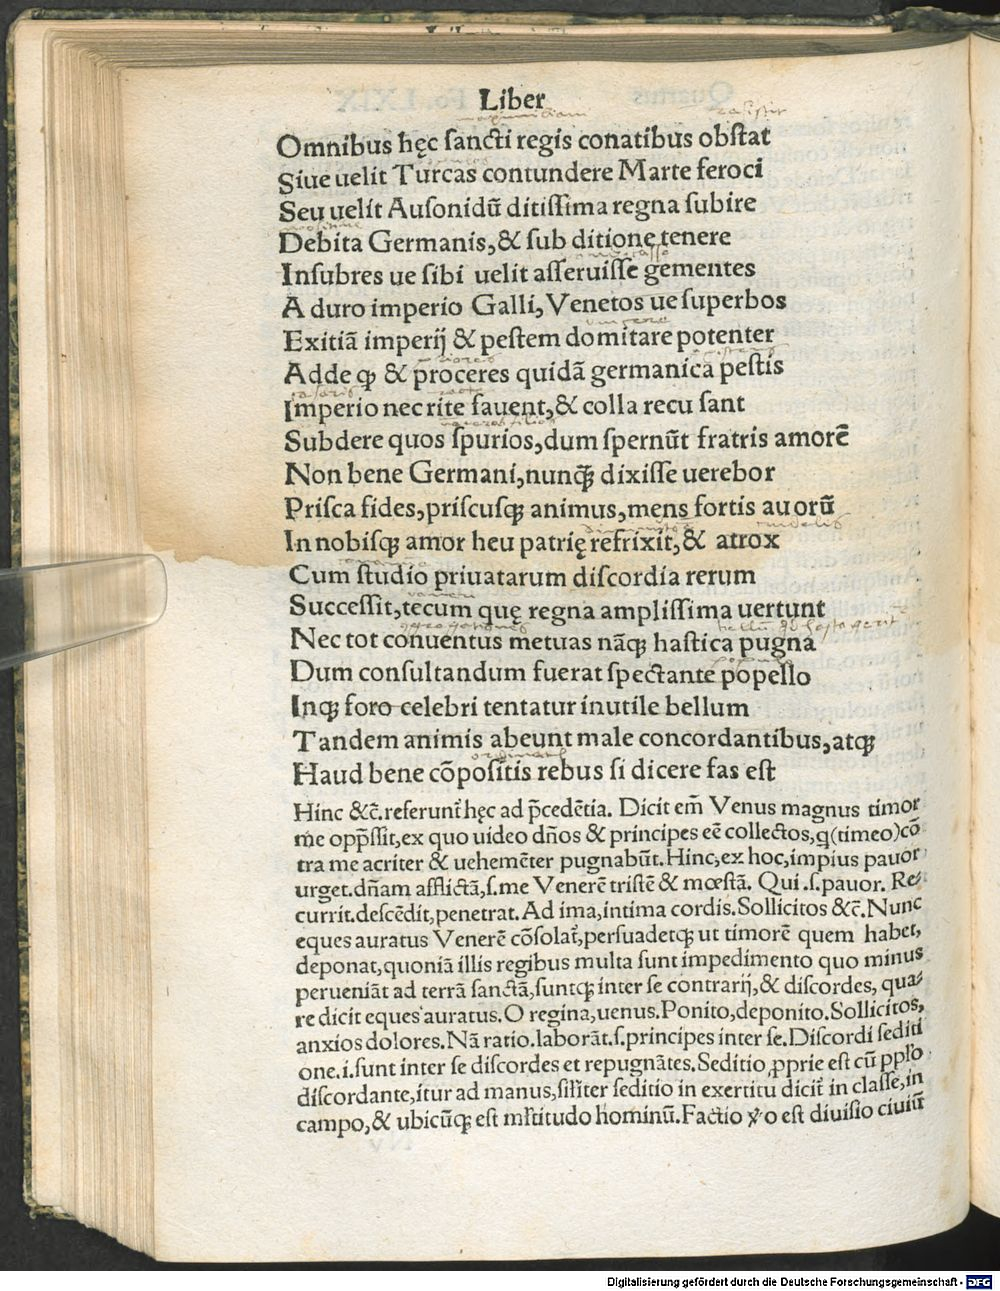 Liber
Omnibus hęc sancti regis conatibus obstat
Siue uelit Turcas contundere Marte feroci
Seu uelit Ausonidũ ditissima regna subire
Debita Germanis,& sub ditione tenere
Insubres ue sibi uelit asseruisse gementes
A duro imperio Galli, Venetos ue superbos
Exitiã imperij & pestem domitare potenter
Adde ꝙ & proceres quidã germanica pestis
Imperio nec rite fauent,& colla recu sant
Subdere quos spurios,dum spernũt fratris amorẽ
Non bene Germani,nunq̃ dixisse uerebor
Prisca fides,priscusq; animus,mens fortis auorũ
In nobisq; amor heu patrię refrixit,& atrox
Cum studio priuatarum discordia rerum
Successit,tecum quę regna amplissima uertunt
Nec tot conuentus metuas nãq; hastica pugna
Dum consultandum fuerat spectante popello
Inq; foro celebri tentatur inutile bellum
Tandem animis abeunt male concordantibus,atq;
Haud bene cõpositis rebus si dicere fas est
Hinc &c̃.referunt̃ hęc ad p̃cedẽtia. Dicit em̃ Venus magnus timor
me opp̃ssit,ex quo uideo dños & principes eẽ collectos,q(timeo)cõ
tra me acriter & uehemẽter pugnabũt.Hinc,ex hoc,impius pauor
urget.dñam afflictã,s.me Venerẽ tristẽ & mœstã. Qui .s.pauor. Re⸗
currit.descẽdit,penetrat.Ad ima,intima cordis.Sollicitos &c̃.Nunc
eques auratus Venerẽ cõsolat̃,persuadetq; ut timorẽ quem habet,
deponat,quoniã illis regibus multa sunt impedimento quo minus
perueniãt ad terrã sanctã,suntq; inter se contrarij,& discordes, qua⸗
re dicit eques auratus.O regina,uenus.Ponito,deponito.Sollicitos,
anxios dolores.Nã ratio.laborãt.s.principes inter se.Discordi sediti
one.i.sunt inter se discordes et repugnãtes.Seditio ꝓprie est cũ pplõ
discordante,itur ad manus,silr̃iter seditio in exertitu dicit̃ in classe,in
campo,& ubicũq; est ml̃titudo hominũ.Factio ꝟo est diuisio ciuiũ
Digitalisierung gefördert durch die Deutsche Forschungsgemeinschaft - DFG